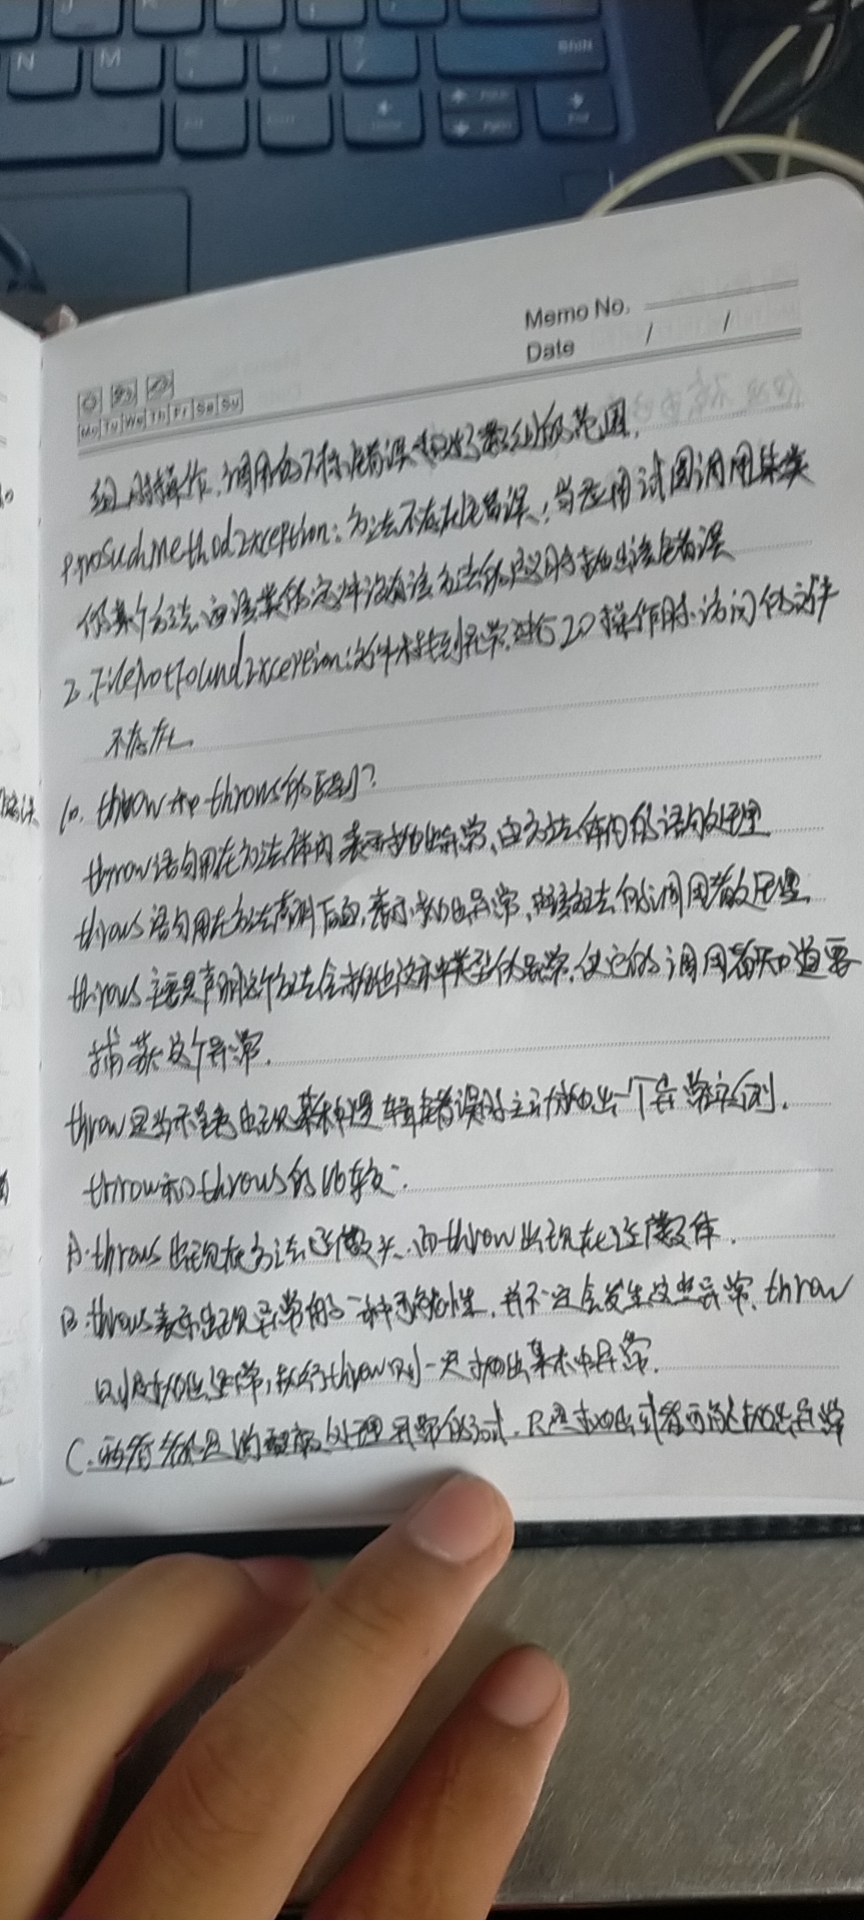 Shift
N
M
Memo No.
Date / /
Mo Tu We Th Fr Sa Su
组时操作,调用的下标错误超出了数组的范围.
NoSuchMethodException:方法不存在错误,当应用试图调用某类
的某个方法,而该类的定义中没有该方法的定义时抛出该错误
2.FileNotFoundException:文件未找到异常.进行IO操作时访问的文件
不存在
10. throw 和 throws的区别?
throw语句用在方法体内表示抛出异常,由方法体内的语句处理
throws语句用在方法声明后面,表示抛出异常,由该方法的调用者处理
throws主要是声明这个方法会抛出这种类型的异常,使它的调用者知道要
捕获这个异常.
throw是当出现某种逻辑错误时主动抛出一个异常实例.
throw和throws的比较:
A.throws出现在方法函数头,而throw出现在函数体.
B.throws表示出现异常的一种可能性,并不一定会发生这些异常,throw
则是抛出异常,执行throw则一定抛出某种异常.
C.两者都是消极处理异常的方式,只是抛出或者可能抛出异常